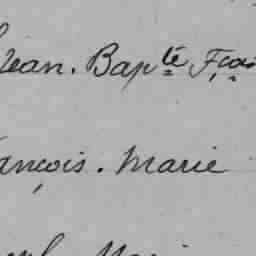 Jean. Bapte Fçois
ançois. Marie